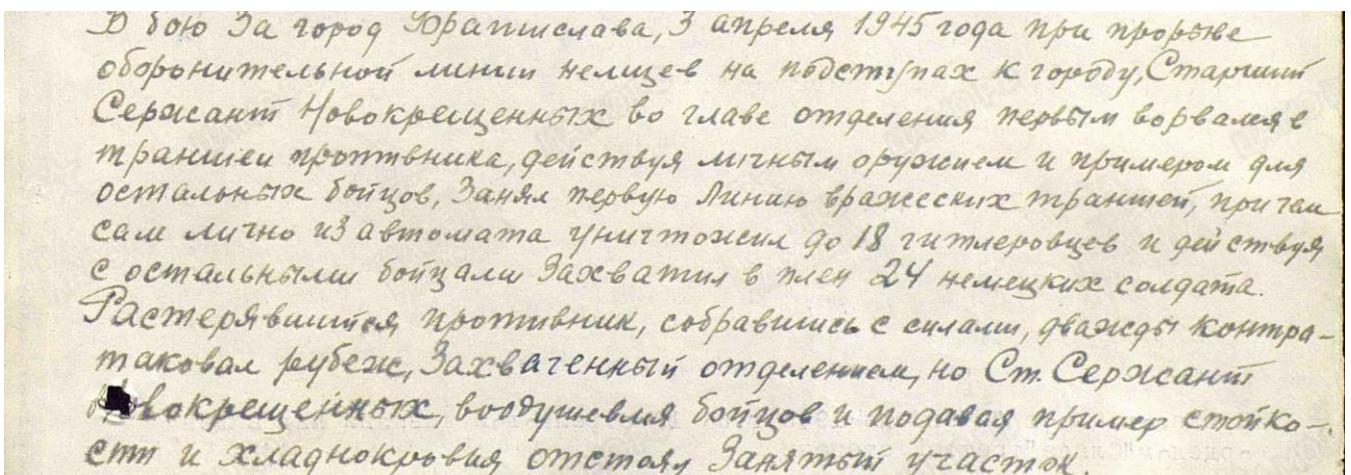 В бою За город Братислава, 3 апреля 1945 года при прорыве
оборонительной линии немцев на подступах к городу, Старший
Сержант Новокрещенных во главе отделения первым ворвался в
траншеи противника, действуя личным оружием и примером для
остальных бойцов, Занял первую Линию вражеских траншей, при чем
сам лично из автомата уничтожил до 18 гитлеровцев и действуя
с остальными бойцами Захватил в плен 24 немецких солдата.
Растерявшийся противник, собравшись с силами, дважды контра-
таковал рубеж, Захваченный отделением, но Ст. Сержант
Новокрещенных, воодушевляя бойцов и подавая пример стойко-
сти и хладнокровия отстоял Занятый участок.